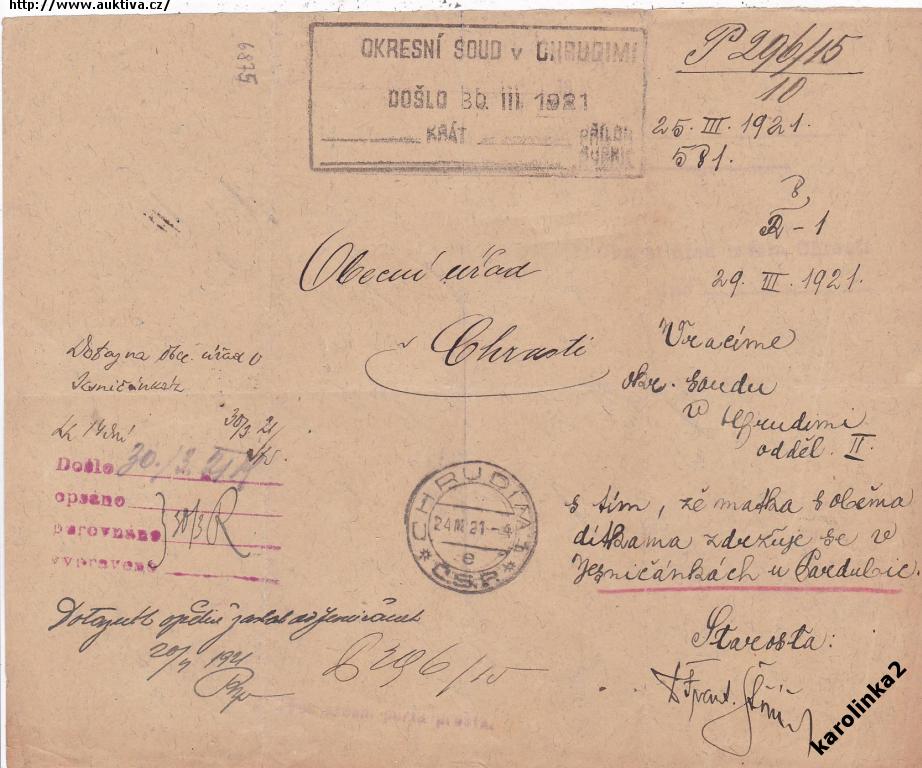 http://www.auktiva.cz/
6875
OKRESNÍ SOUD v CHRUDIMI
DOŠLO 30. III 1921
KRÁT PŘÍLOH
RUBRIK
P 296/15
10
25. III. 1921.
581.
B
R - 1
29. III. 1921.
Obecní úřad
v Chrasti
Vracíme
okr. soudu
v Chrudimi
odděl. II.
s tím, zě matka s oběma
dítkama zdržuje se v
Jesničánkách u Pardubic.
Starosta:
Frant.
Dotaz na obec. úřad v
Jesničánkách
Lh. 14 dní 30/3 21
Došlo 30./3. 21
opsáno
porovnáno
vypraveno
30/3 R
CHRUDIM 1
24.III.21 - 4
e
* ČSR *
20/4 1921
P 296/15
karolinka2